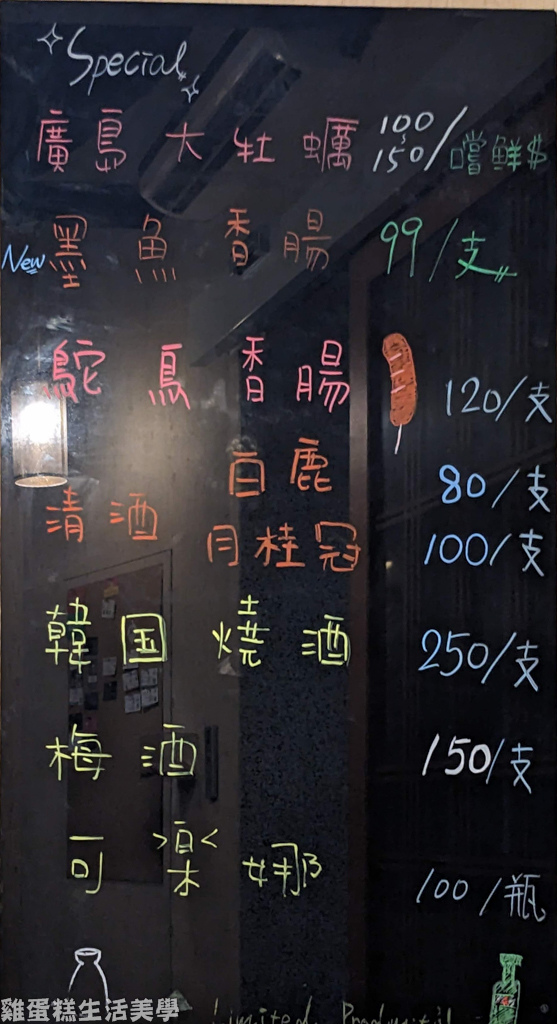 Special
廣島大牡蠣 100~150/嚐鮮$
New 墨魚香腸 99/支
鴕鳥香腸 120/支
白鹿 80/支
清酒
月桂冠 100/支
韓国燒酒 250/支
梅酒 150/支
可樂娜 100/瓶
Limited
雞蛋糕生活美學